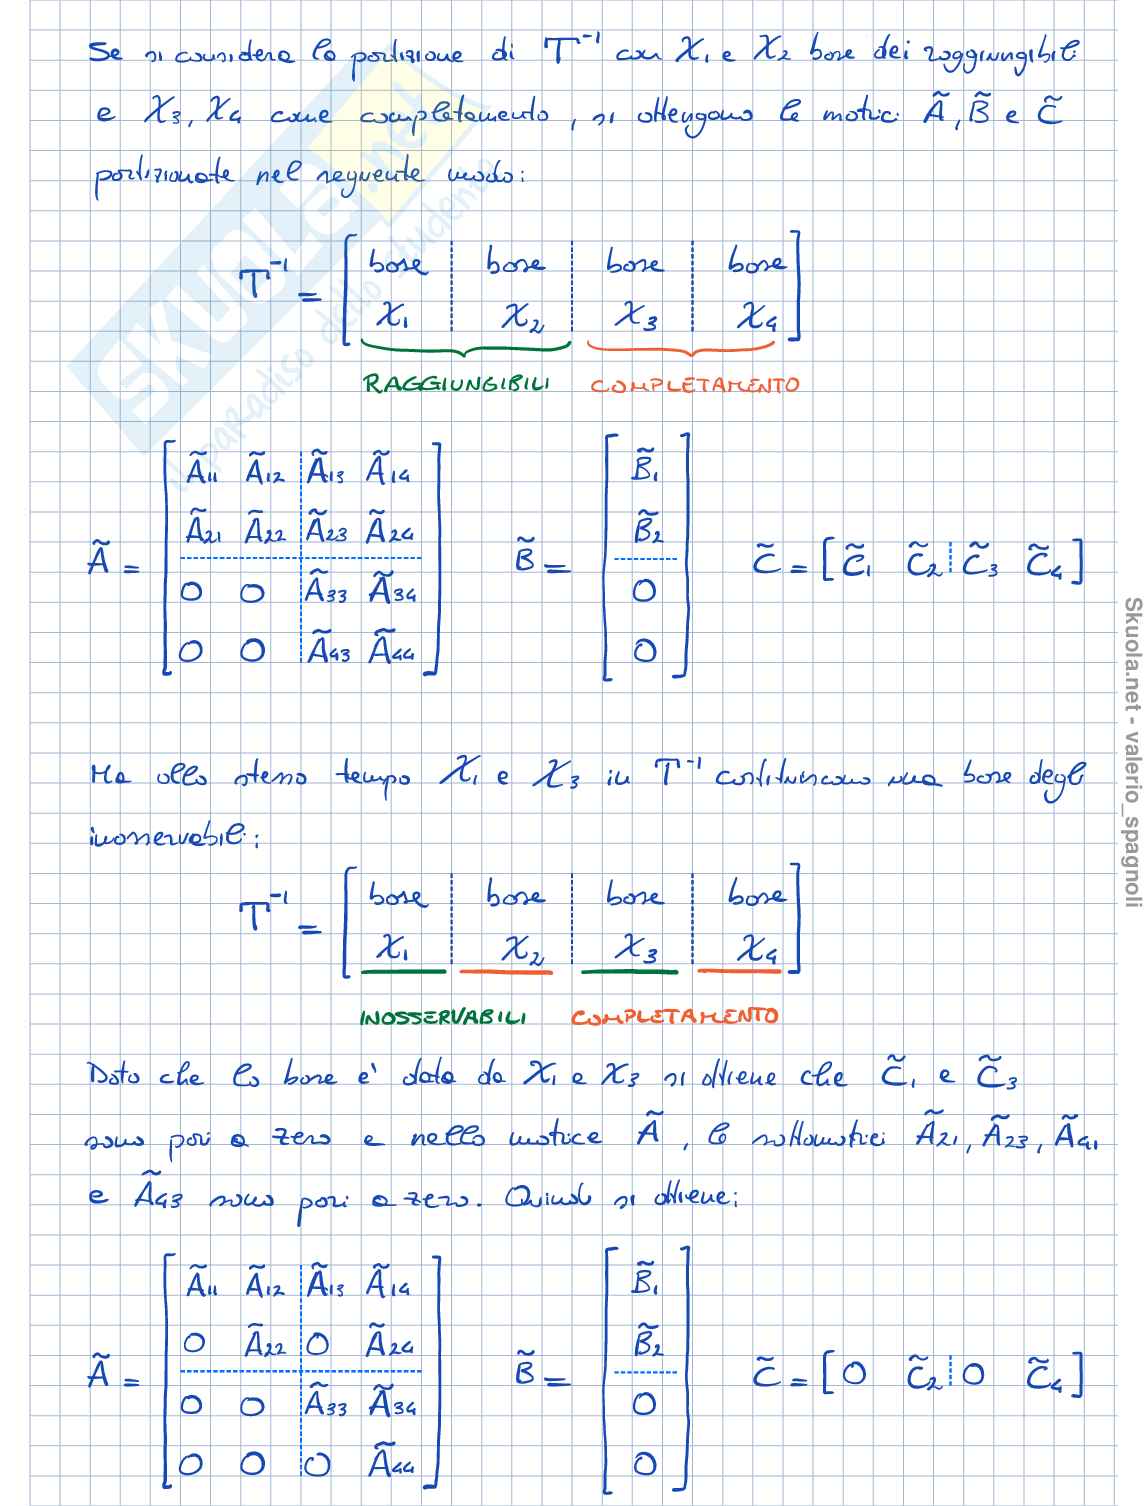 Se si considera la partizione di T⁻¹ con X₁ e X₂ base dei raggiungibili
e X₃, X₄ come completamento, si ottengono le matrici Ã, B̃ e C̃
partizionate nel seguente modo:
T⁻¹ = [base X₁ ¦ base X₂ ¦ base X₃ ¦ base X₄]
RAGGIUNGIBILI COMPLETAMENTO
Ã = [Ã₁₁ Ã₁₂ Ã₁₃ Ã₁₄
Ã₂₁ Ã₂₂ Ã₂₃ Ã₂₄
0 0 Ã₃₃ Ã₃₄
0 0 Ã₄₃ Ã₄₄]
B̃ = [B̃₁
B̃₂
0
0]
C̃ = [C̃₁ C̃₂ ¦ C̃₃ C̃₄]
Ma allo stesso tempo X₁ e X₃ in T⁻¹ costituiscono una base degli
inosservabili:
T⁻¹ = [base X₁ ¦ base X₂ ¦ base X₃ ¦ base X₄]
INOSSERVABILI COMPLETAMENTO
Dato che la base e' data da X₁ e X₃ si ottiene che C̃₁ e C̃₃
sono pari a zero e nella matrice Ã, le sottomatrici Ã₂₁, Ã₂₃, Ã₄₁
e Ã₄₃ sono pari a zero. Quindi si ottiene:
Ã = [Ã₁₁ Ã₁₂ Ã₁₃ Ã₁₄
0 Ã₂₂ 0 Ã₂₄
0 0 Ã₃₃ Ã₃₄
0 0 0 Ã₄₄]
B̃ = [B̃₁
B̃₂
0
0]
C̃ = [0 C̃₂ ¦ 0 C̃₄]
SKUOLA.net
il paradiso dello studente
Skuola.net - valerio_spagnoli